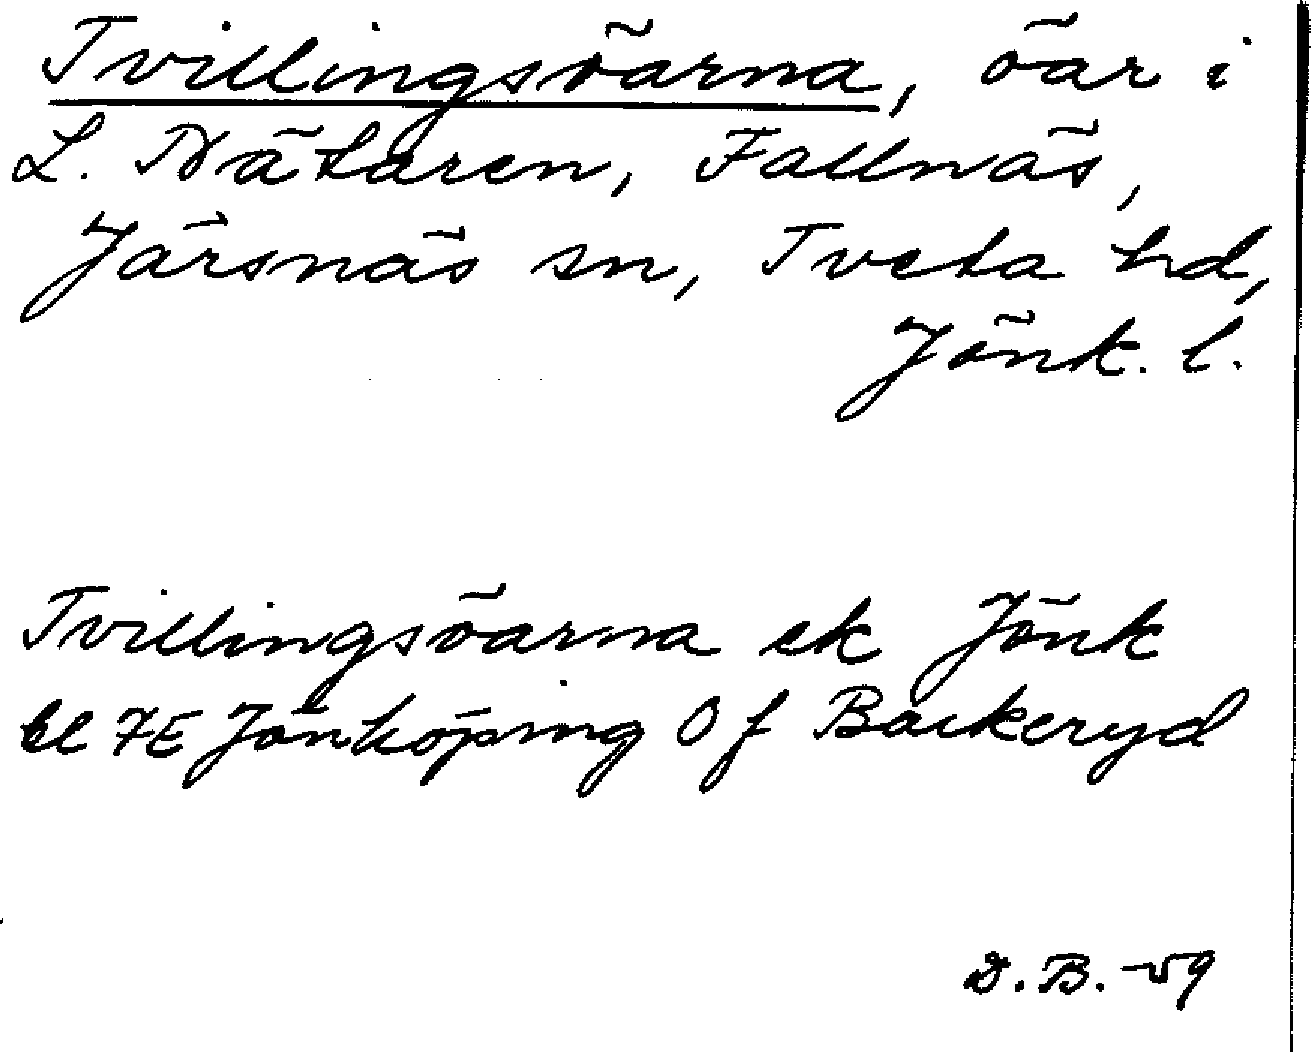 Tvillingsöarna, öar i
L. Nätaren, Fallnäs,
Järsnäs sn, Tveta hd,
Jönk. l.
Tvillingsöarna ek Jönk
bl 7E Jönköping Of Backeryd
D.B. -59